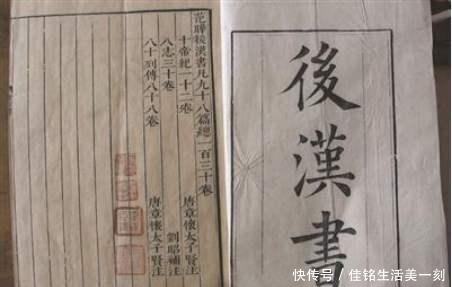 後漢書
范曄後漢書凡九十八篇總一百三十卷
十帝紀一十二卷 唐章懷太子賢注
八志三十卷 劉昭補注
八十列傳八十八卷 唐章懷太子賢注
快传号 / 佳铭生活美一刻